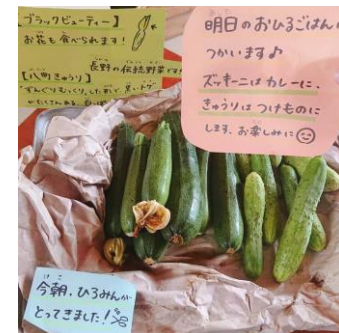 ブラックビューティー】
お花も食べられます!
長野の伝統野菜です!
【八町きゅうり】
ずんぐりむっくり
明日のおひるごはん
つかいます♪
ズッキーニはカレーに、
きゅうりはつけものに
します。お楽しみに
今朝、ひろみんが
とってきました!